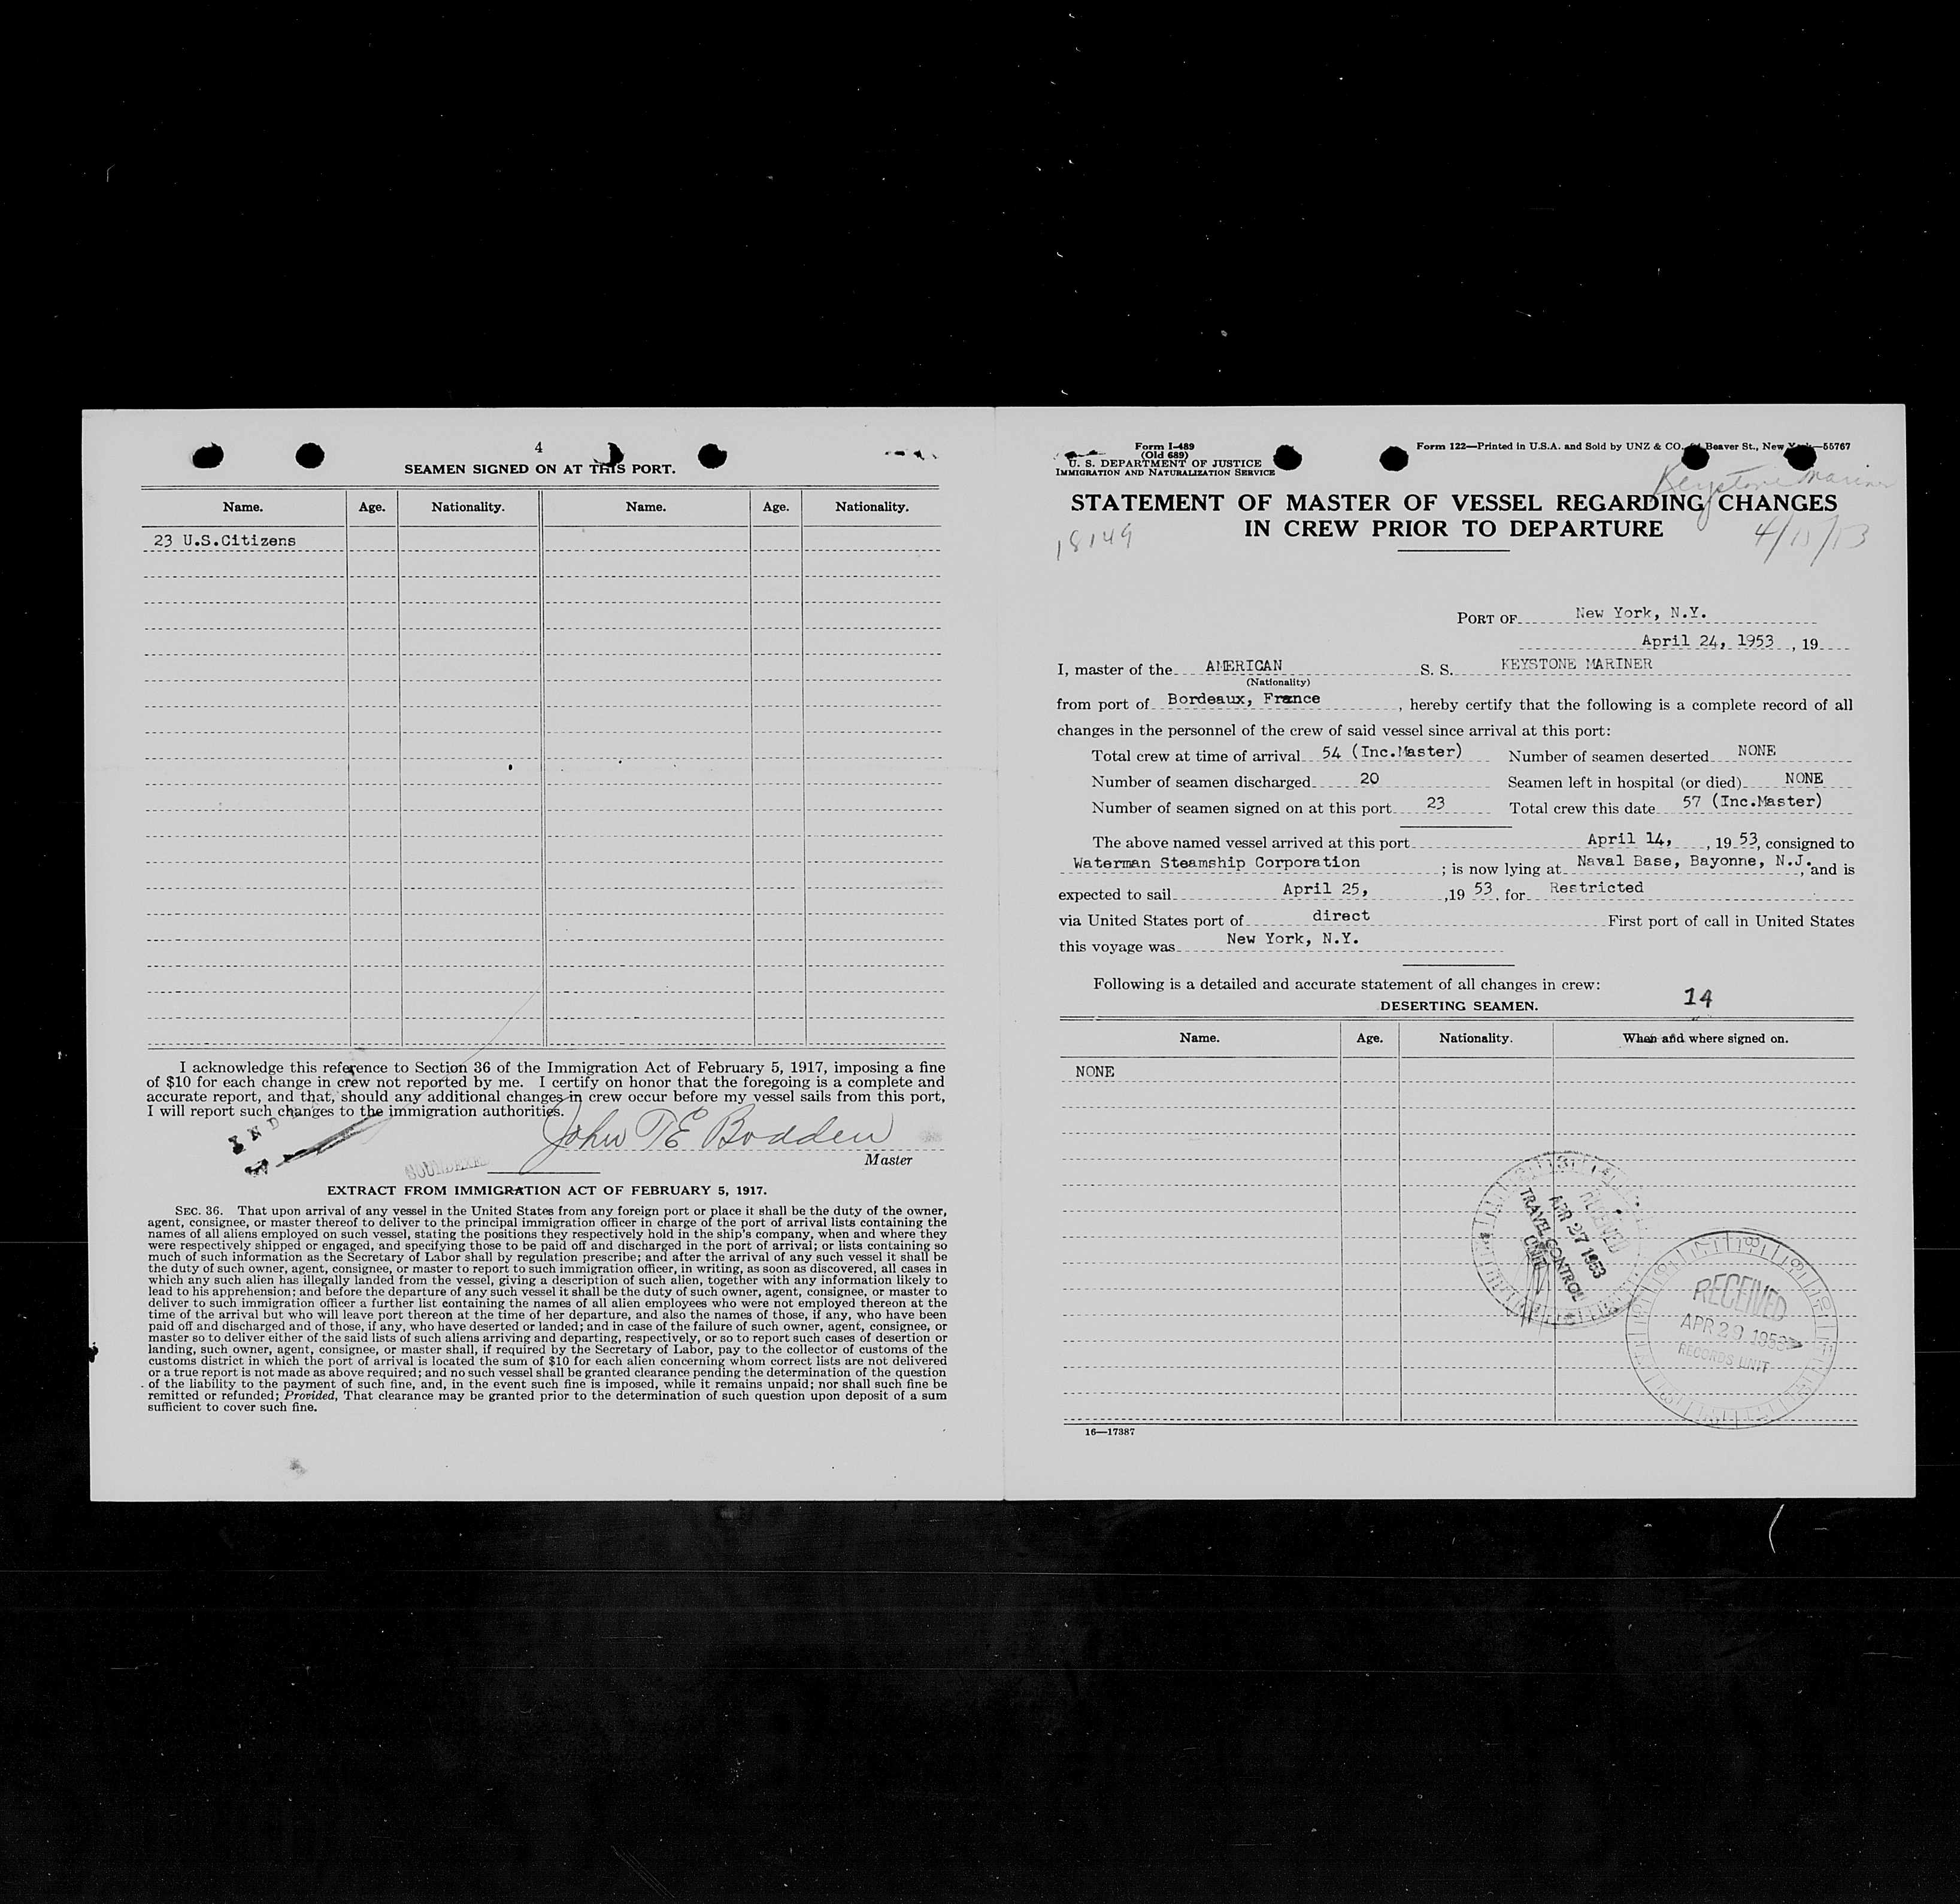 4
SEAMEN SIGNED ON AT THIS PORT.
Name. Age. Nationality. Name. Age. Nationality.
23 U.S.Citizens
I acknowledge this reference to Section 36 of the Immigration Act of February 5, 1917, imposing a fine
of $10 for each change in crew not reported by me. I certify on honor that the foregoing is a complete and
accurate report, and that, should any additional changes in crew occur before my vessel sails from this port,
I will report such changes to the immigration authorities.
John T E Bodden
Master
EXTRACT FROM IMMIGRATION ACT OF FEBRUARY 5, 1917.
SEC. 36. That upon arrival of any vessel in the United States from any foreign port or place it shall be the duty of the owner,
agent, consignee, or master thereof to deliver to the principal immigration officer in charge of the port of arrival lists containing the
names of all aliens employed on such vessel, stating the positions they respectively hold in the ship's company, when and where they
were respectively shipped or engaged, and specifying those to be paid off and discharged in the port of arrival; or lists containing so
much of such information as the Secretary of Labor shall by regulation prescribe; and after the arrival of any such vessel it shall be
the duty of such owner, agent, consignee, or master to report to such immigration officer, in writing, as soon as discovered, all cases in
which any such alien has illegally landed from the vessel, giving a description of such alien, together with any information likely to
lead to his apprehension; and before the departure of any such vessel it shall be the duty of such owner, agent, consignee, or master to
deliver to such immigration officer a further list containing the names of all alien employees who were not employed thereon at the
time of the arrival but who will leave port thereon at the time of her departure, and also the names of those, if any, who have been
paid off and discharged and of those, if any, who have deserted or landed; and in case of the failure of such owner, agent, consignee, or
master so to deliver either of the said lists of such aliens arriving and departing, respectively, or so to report such cases of desertion or
landing, such owner, agent, consignee, or master shall, if required by the Secretary of Labor, pay to the collector of customs of the
customs district in which the port of arrival is located the sum of $10 for each alien concerning whom correct lists are not delivered
or a true report is not made as above required; and no such vessel shall be granted clearance pending the determination of the question
of the liability to the payment of such fine, and, in the event such fine is imposed, while it remains unpaid; nor shall such fine be
remitted or refunded; Provided, That clearance may be granted prior to the determination of such question upon deposit of a sum
sufficient to cover such fine.
Form I-489
(Old 689)
U. S. DEPARTMENT OF JUSTICE
IMMIGRATION AND NATURALIZATION SERVICE
Form 122—Printed in U.S.A. and Sold by UNZ & CO. Beaver St., New York—55767
Keystone Mariner
STATEMENT OF MASTER OF VESSEL REGARDING CHANGES
IN CREW PRIOR TO DEPARTURE
18149
PORT OF New York, N.Y.
April 24, 1953 , 19
I, master of the AMERICAN S. S. KEYSTONE MARINER
(Nationality)
from port of Bordeaux, France , hereby certify that the following is a complete record of all
changes in the personnel of the crew of said vessel since arrival at this port:
Total crew at time of arrival 54 (Inc.Master) Number of seamen deserted NONE
Number of seamen discharged 20 Seamen left in hospital (or died) NONE
Number of seamen signed on at this port 23 Total crew this date 57 (Inc.Master)
The above named vessel arrived at this port April 14, , 19 53, consigned to
Waterman Steamship Corporation ; is now lying at Naval Base, Bayonne, N.J. , and is
expected to sail April 25, ,19 53, for Restricted
via United States port of direct First port of call in United States
this voyage was New York, N.Y.
Following is a detailed and accurate statement of all changes in crew:
14
DESERTING SEAMEN.
Name. Age. Nationality. When and where signed on.
NONE
RECEIVED
APR 27 1953
TRAVEL CONTROL
UNIT
RECEIVED
APR 29 1953
RECORDS UNIT
16—17387